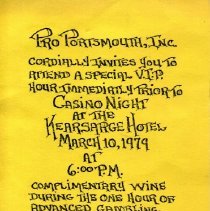 PRO PORTSMOUTH, INC.
CORDIALLY INVITES YOU TO
ATTEND A SPECIAL V.I.P.
HOUR IMMEDIATLY PRIOR TO
CASINO NIGHT
AT THE
KEARSARGE HOTEL
MARCH 10, 1979
AT
6:00 P.M.
COMPLIMENTARY WINE
DURING THE ONE HOUR OF
ADVANCED GAMBLING